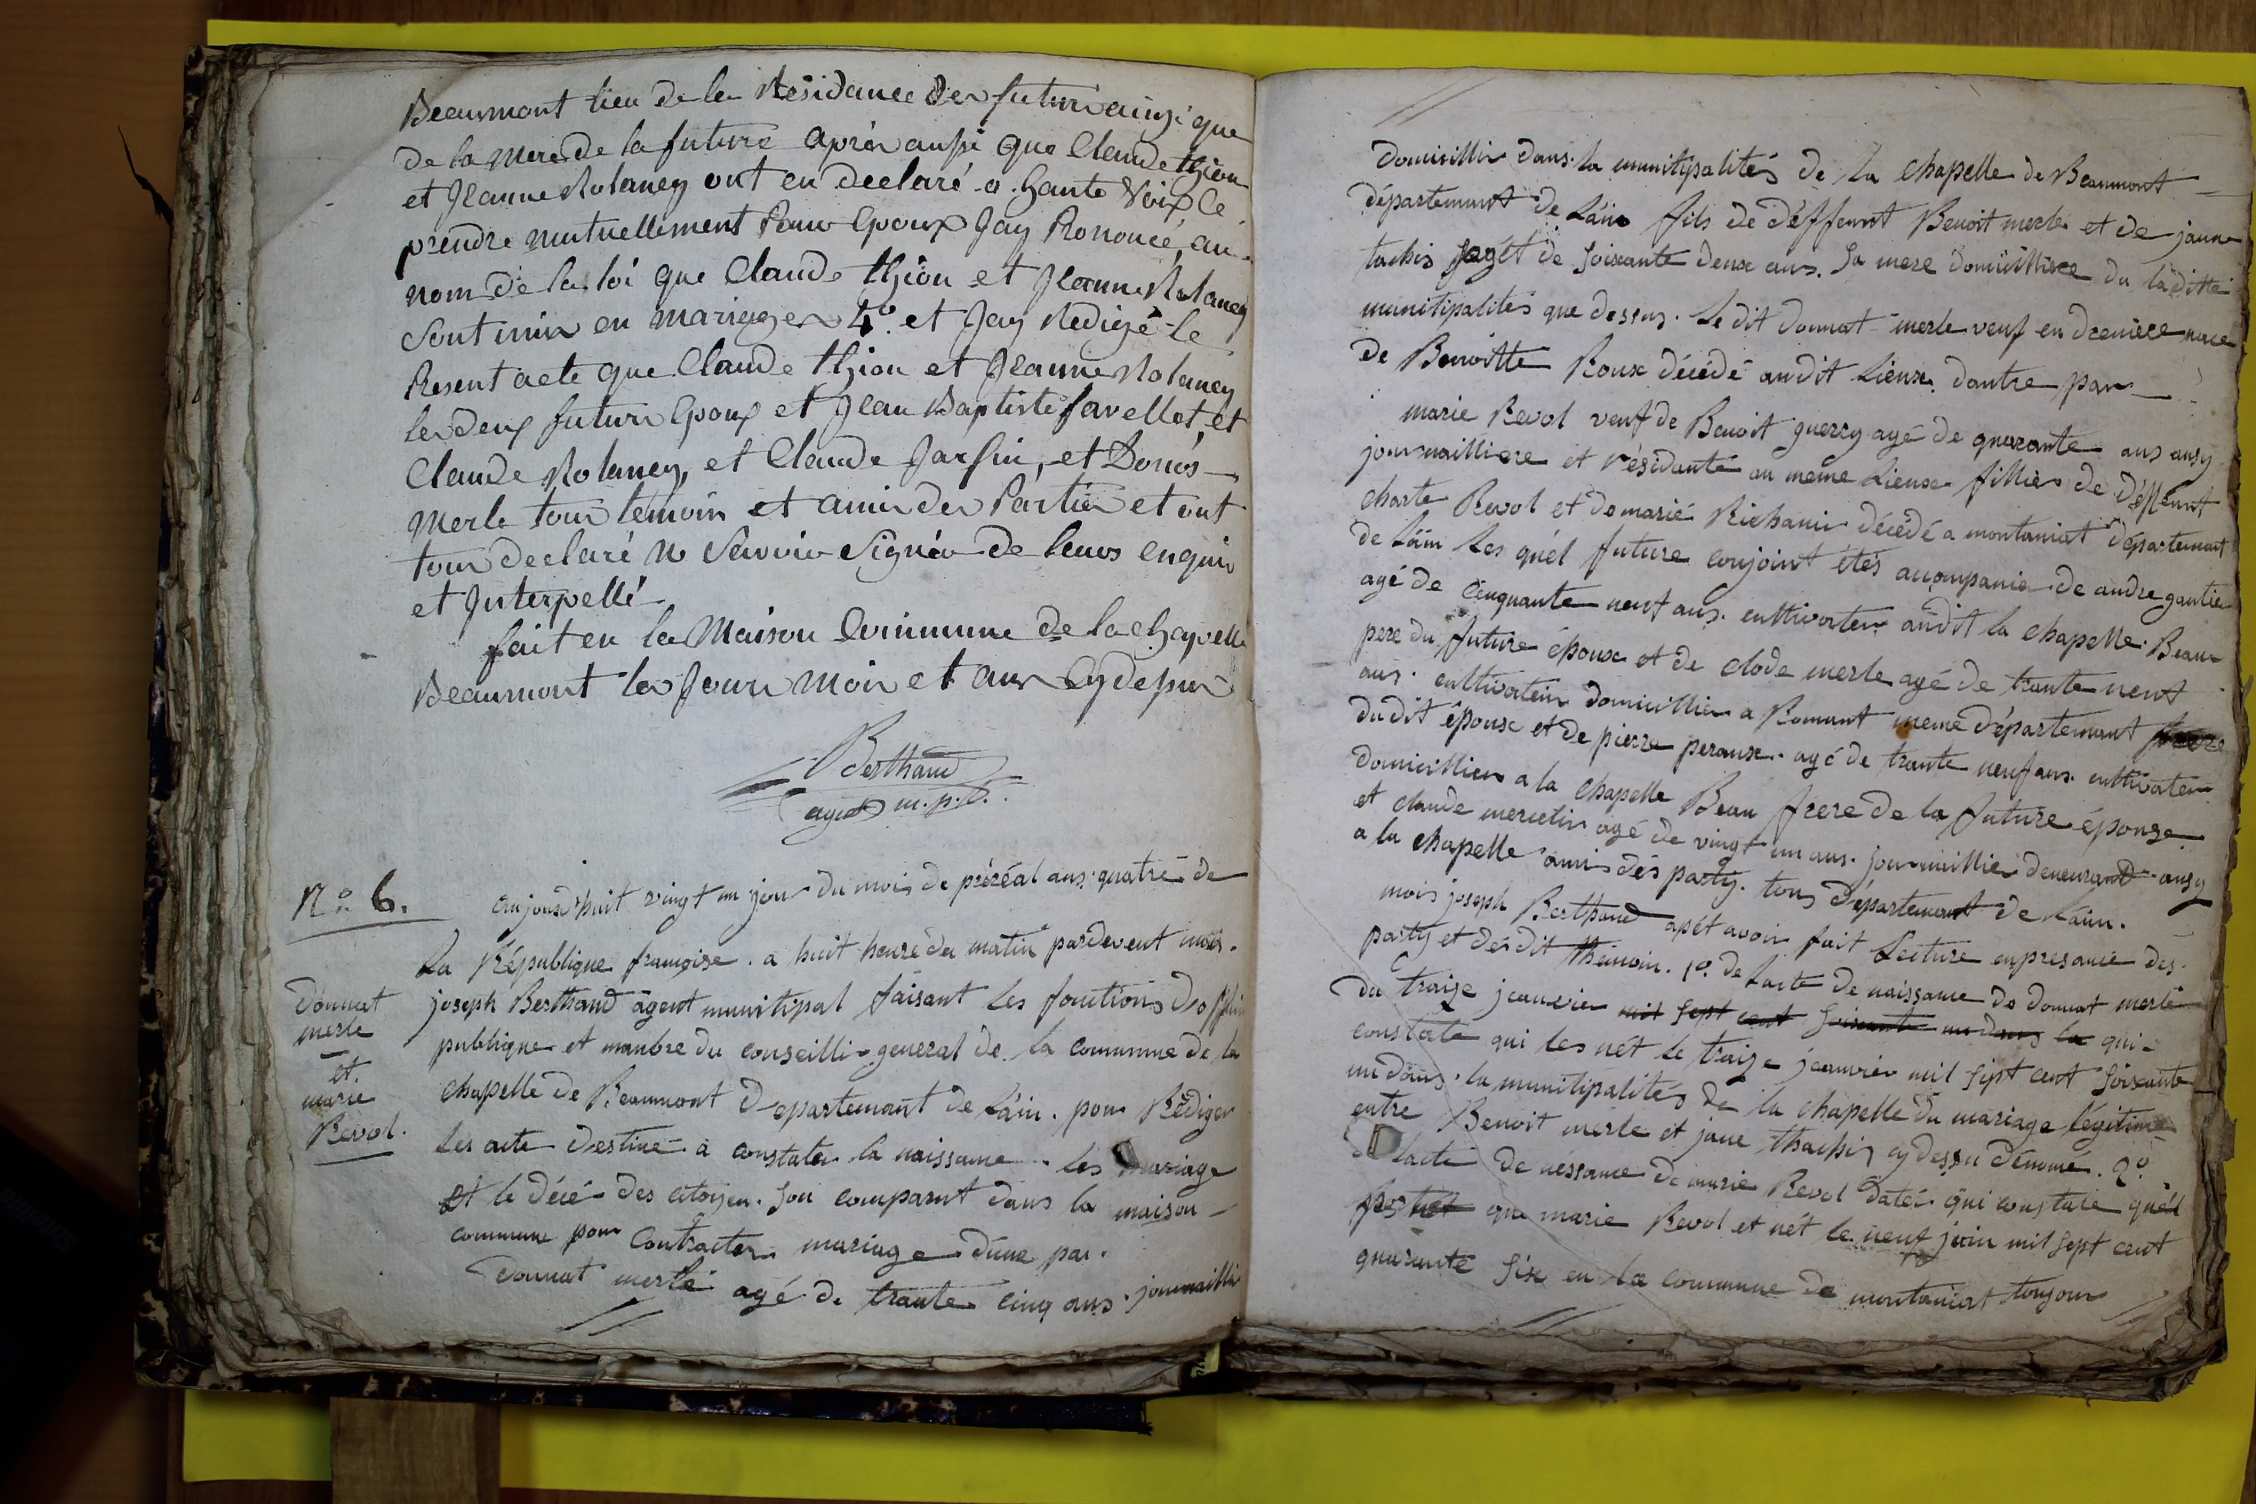 Beaumont lieu de la Residance des futurs ainsi que
de la mere de la future après aussi que Claude thion
et Jeanne Rolancy ont eu declaré a haute Voix Ce
prendre mutuellement Pour Epoux Jay Prononcé, au
nom de la loi que Claude thion et Jeanne Rolancy
Sont unis en mariages 4o. et Jay Redigé le
Present acte que Claude thion et Jeanne Rolancy
les deux futurs Epoux et Jean Baptiste favellet, et
Claude Rolancy, et Claude Jarsin, et Donos
Merle tous temoin et amis des Parties et ont
tous declaré ne Savoir Signér de leurs enquis
et Interpellé
fait en la Maison Commune de la Chapelle
Beaumont les Jours Mois et ans Cy depus
Berthaud
agent m. p. l.
No. 6.
aujourd'huit vingt un jour du mois de préréal ans quatre de
la République françoise. a huit heure du matin pardevent mois.
Donnat
merle
et.
marie
Revol.
joseph Berthaud agent munitipal faisant les fonctions d'offisi
publique et manbre du conseillier general de la commune de la
chapelle de Beaumont Departemant de Láin. pour Rédiger
les acte Destine a constater la naissance. les mariage
et le décé des citoyen. son comparut dans la maison
commune pour Contracter mariage dune par.
Donnat merle agé de trante cinq ans. journaillie
Domicillir dans la munitipalités de la chapelle de Beaumont
département de Láin fils de déffeunt Benoit merle et de jaune
tachis de soixante deux ans. sa mere domicillire du laditte
munitipalités que dessus. Le dit Donnat merle veuf en dreniere
de Benoitte Roux décédé audit Lieux dautre par
marie Revol veuf de Benoit guerry agé de quarante ans ausy
journailliere et résidante au meme Lieux fillier de Déffeunt
charle Revol et de marié Richanir décédé a montaniat département
de Láin Les quél future conjoint étés acompanie de andre gautier
agé de cinquante neuf ans. cultivateur audit la chapelle. Beau
pere du future époux et de clode merle agé de trante neuf
ans. cultivateur domicillier a Romant meme département frere
du dit époux et de pierre peroux. agé de trante neuf ans cultivateur
domicillier a la chapelle Beau frere de la future épouge
et claude merietin agé de vingt un ans. journaillier demeurant ausy
a la chapelle amis dés party. tous département de Láin.
mois joseph Berthaud apét avoir fait Lecture enpresance des.
party et dés dit thémoin. 1o. de Lacte de naissance de donnat merle
du traize jeanvier mil sept cent soixante un dans la qui
constate qui les nét le traize jeanvier mil sept cent soixante
un dans la munitipalités de la chapelle du mariage légitime
entre Benoit merle et jane thachis cy dessu dénomé. 2o
Lacte de néssance de marie Revol datée qui constate quél
que marie Revol et nét le neuf juin mil sept cent
quarante six en la commune de montaniat toujour